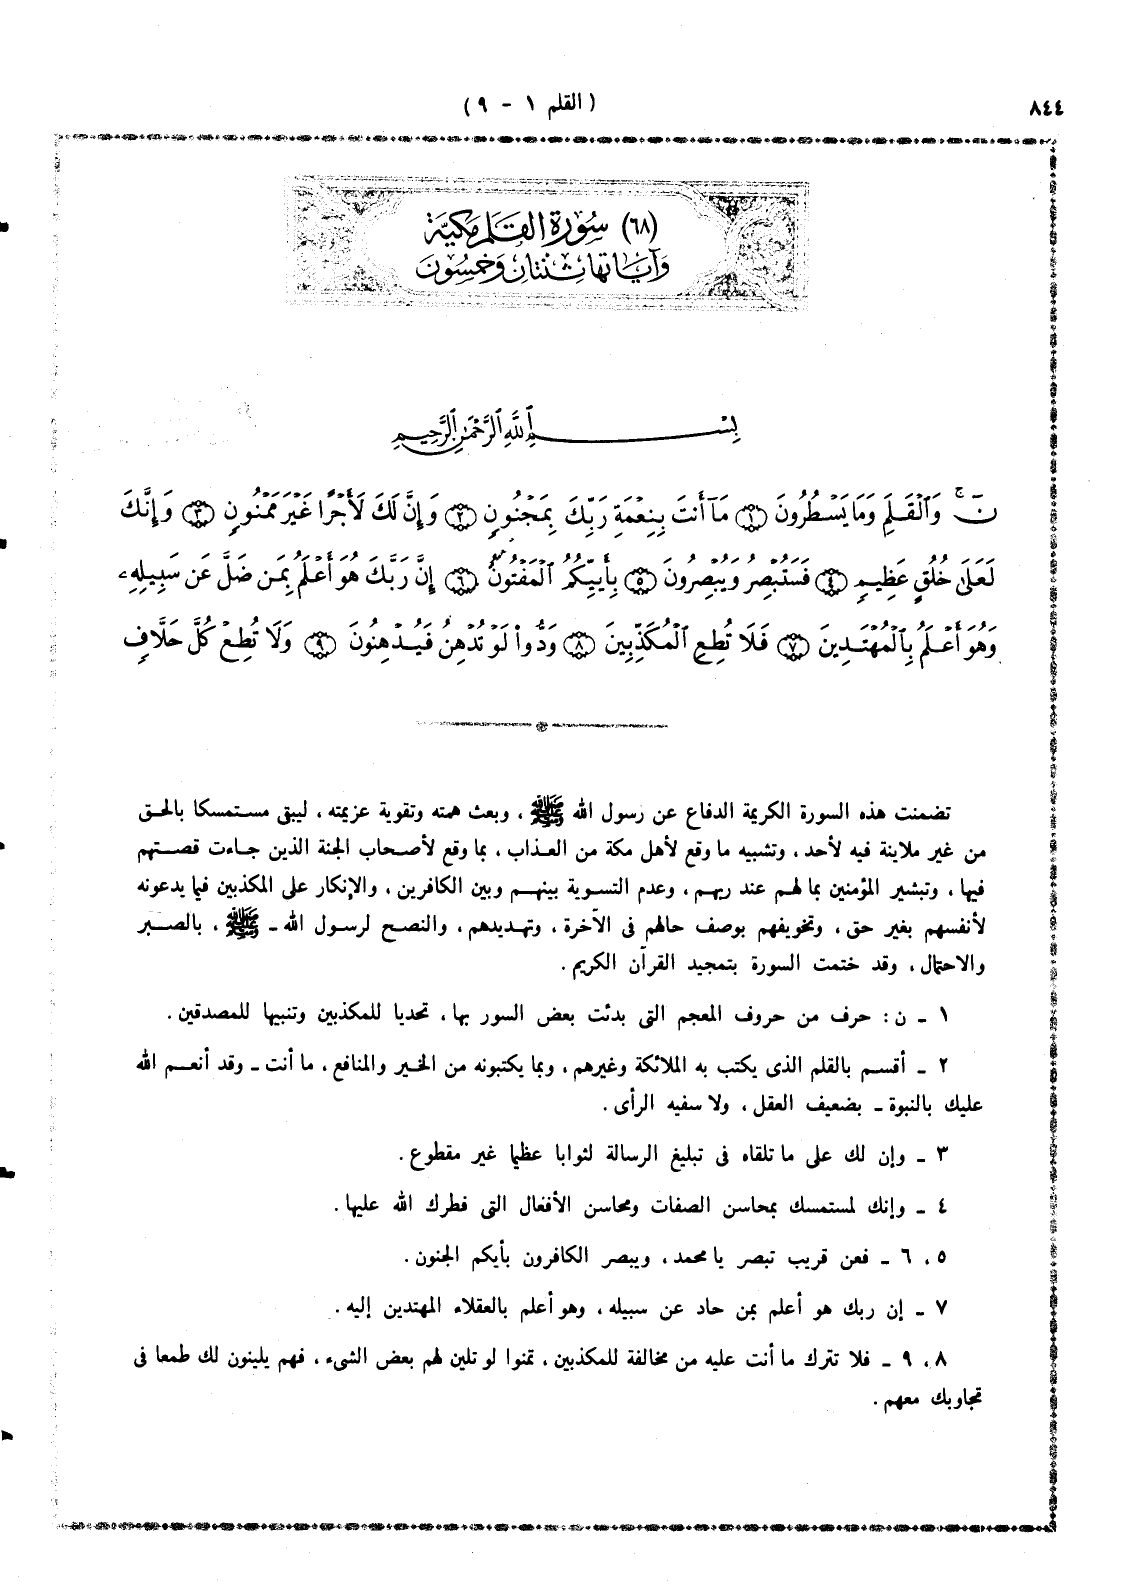 ٨٤٤
( القلم ١ - ٩ )
(٦٨) سُورَةُ القَلَم مَكيَّة
وَآيَاتُهَا ثِنْتَان وَخَمْسُونَ
بِسْمِ ٱللَّهِ ٱلرَّحْمَٰنِ ٱلرَّحِيمِ
نٓ ۚ وَٱلْقَلَمِ وَمَا يَسْطُرُونَ ﴿١﴾ مَآ أَنتَ بِنِعْمَةِ رَبِّكَ بِمَجْنُونٍ ﴿٢﴾ وَإِنَّ لَكَ لَأَجْرًا غَيْرَ مَمْنُونٍ ﴿٣﴾ وَإِنَّكَ
لَعَلَىٰ خُلُقٍ عَظِيمٍ ﴿٤﴾ فَسَتُبْصِرُ وَيُبْصِرُونَ ﴿٥﴾ بِأَييِّكُمُ ٱلْمَفْتُونُ ﴿٦﴾ إِنَّ رَبَّكَ هُوَ أَعْلَمُ بِمَن ضَلَّ عَن سَبِيلِهِۦ
وَهُوَ أَعْلَمُ بِٱلْمُهْتَدِينَ ﴿٧﴾ فَلَا تُطِعِ ٱلْمُكَذِّبِينَ ﴿٨﴾ وَدُّوا۟ لَوْ تُدْهِنُ فَيُدْهِنُونَ ﴿٩﴾ وَلَا تُطِعْ كُلَّ حَلَّافٍ
تضمنت هذه السورة الكريمة الدفاع عن رسول الله ﷺ ، وبعث همته وتقوية عزيمته ، ليبقى مستمسكا بالحق
من غير ملاينة فيه لأحد ، وتشبيه ما وقع لأهل مكة من العذاب ، بما وقع لأصحاب الجنة الذين جاءت قصتهم
فيها ، وتبشير المؤمنين بما لهم عند ربهم ، وعدم التسوية بينهم وبين الكافرين ، والإنكار على المكذبين فيما يدعونه
لأنفسهم بغير حق ، وتخويفهم بوصف حالهم فى الآخرة ، وتهديدهم ، والنصح لرسول الله - ﷺ ، بالصبر
والاحتمال ، وقد ختمت السورة بتمجيد القرآن الكريم .
١ - ن : حرف من حروف المعجم التى بدئت بعض السور بها ، تحديا للمكذبين وتنبيها للمصدقين .
٢ - أقسم بالقلم الذى يكتب به الملائكة وغيرهم ، وبما يكتبونه من الخير والمنافع ، ما أنت - وقد أنعم الله
عليك بالنبوة - بضعيف العقل ، ولا سفيه الرأى .
٣ - وإن لك على ما تلقاه فى تبليغ الرسالة لثوابا عظيما غير مقطوع .
٤ - وإنك لمستمسك بمحاسن الصفات ومحاسن الأفعال التى فطرك الله عليها .
٥ ، ٦ - فعن قريب تبصر يا محمد ، ويبصر الكافرون بأيكم الجنون .
٧ - إن ربك هو أعلم بمن حاد عن سبيله ، وهو أعلم بالعقلاء المهتدين إليه .
٨ ، ٩ - فلا تترك ما أنت عليه من مخالفة للمكذبين ، تمنوا لو تلين لهم بعض الشىء ، فهم يلينون لك طمعا فى
تجاوبك معهم .